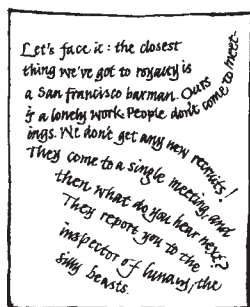 Let's face it: the closest
thing we've got to royalty is
a San Francisco barman. Ours
is a lonely work. People don't come to meet-
ings. We don't get any new recruits!
They come to a single meeting, and
then what do you hear next?
They report you to the
inspector of lunacy, the
silly beasts.